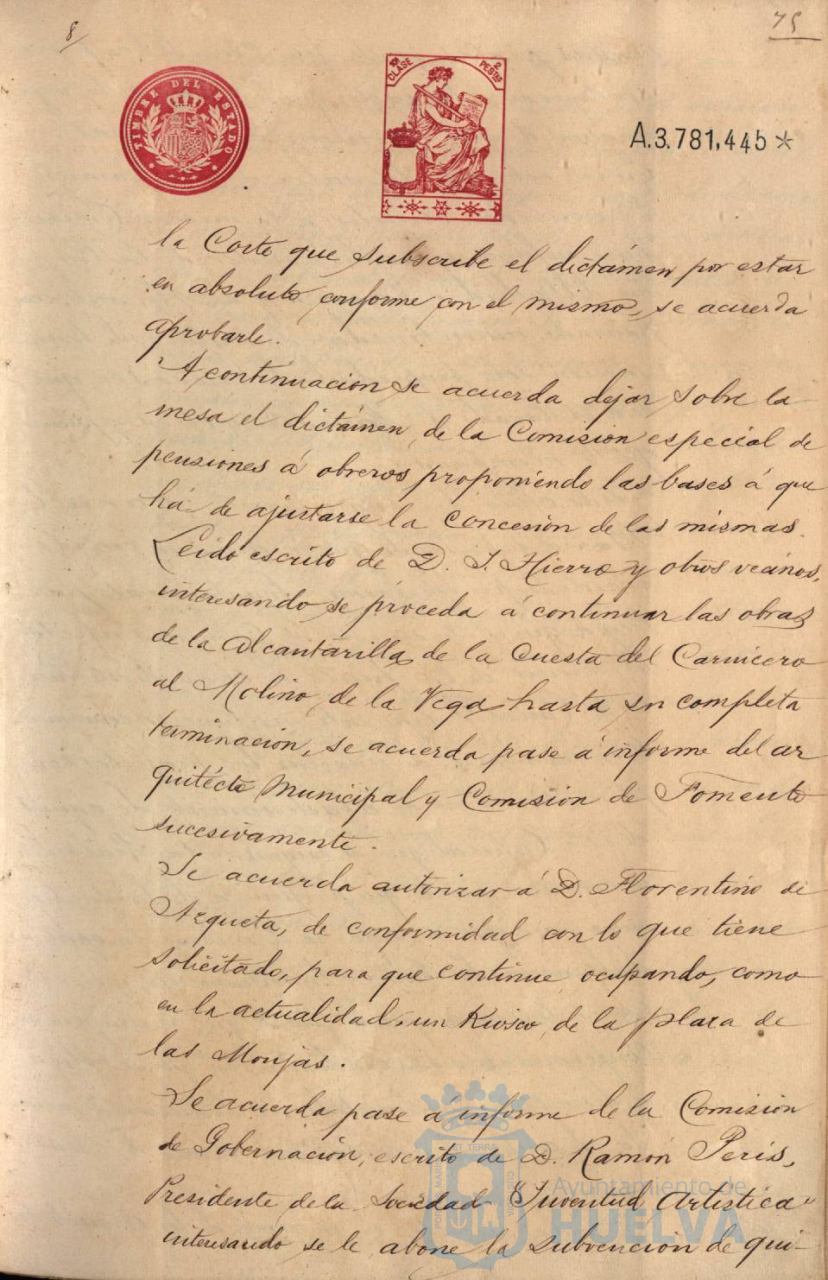 8
75
TIMBRE DEL ESTADO
10ª CLASE 2 PESTAS
A.3.781,445*
la Corte que subscribe el dictámen por estar
en absoluto conforme con el mismo, se acuerda
aprobarle.
A continuacion se acuerda dejar sobre la
mesa el dictámen de la Comision especial de
pensiones á obreros proponiendo las bases á que
há de ajustarse la concesión de las mismas.
Leido escrito de D. J. Hierro y otros vecinos,
interesando se proceda á continuar las obras
de la alcantarilla de la Cuesta del Carnicero
al Molino de la Vega hasta su completa
terminación, se acuerda pase á informe del ar
quitécto Municipal y Comisión de Fomento
sucesivamente.
Se acuerda autorizar á D. Florentino de
Azqueta, de conformidad con lo que tiene
solicitado, para que continue ocupando, como
en la actualidad, un Kiosco de la plaza de
las Monjas.
Se acuerda pase á informe de la Comision
de Gobernación, escrito de D. Ramón Peris,
Presidente de la Sociedad "Juventud Artística"
interesando se le abone la subvención de qui-
Ayuntamiento de
HUELVA